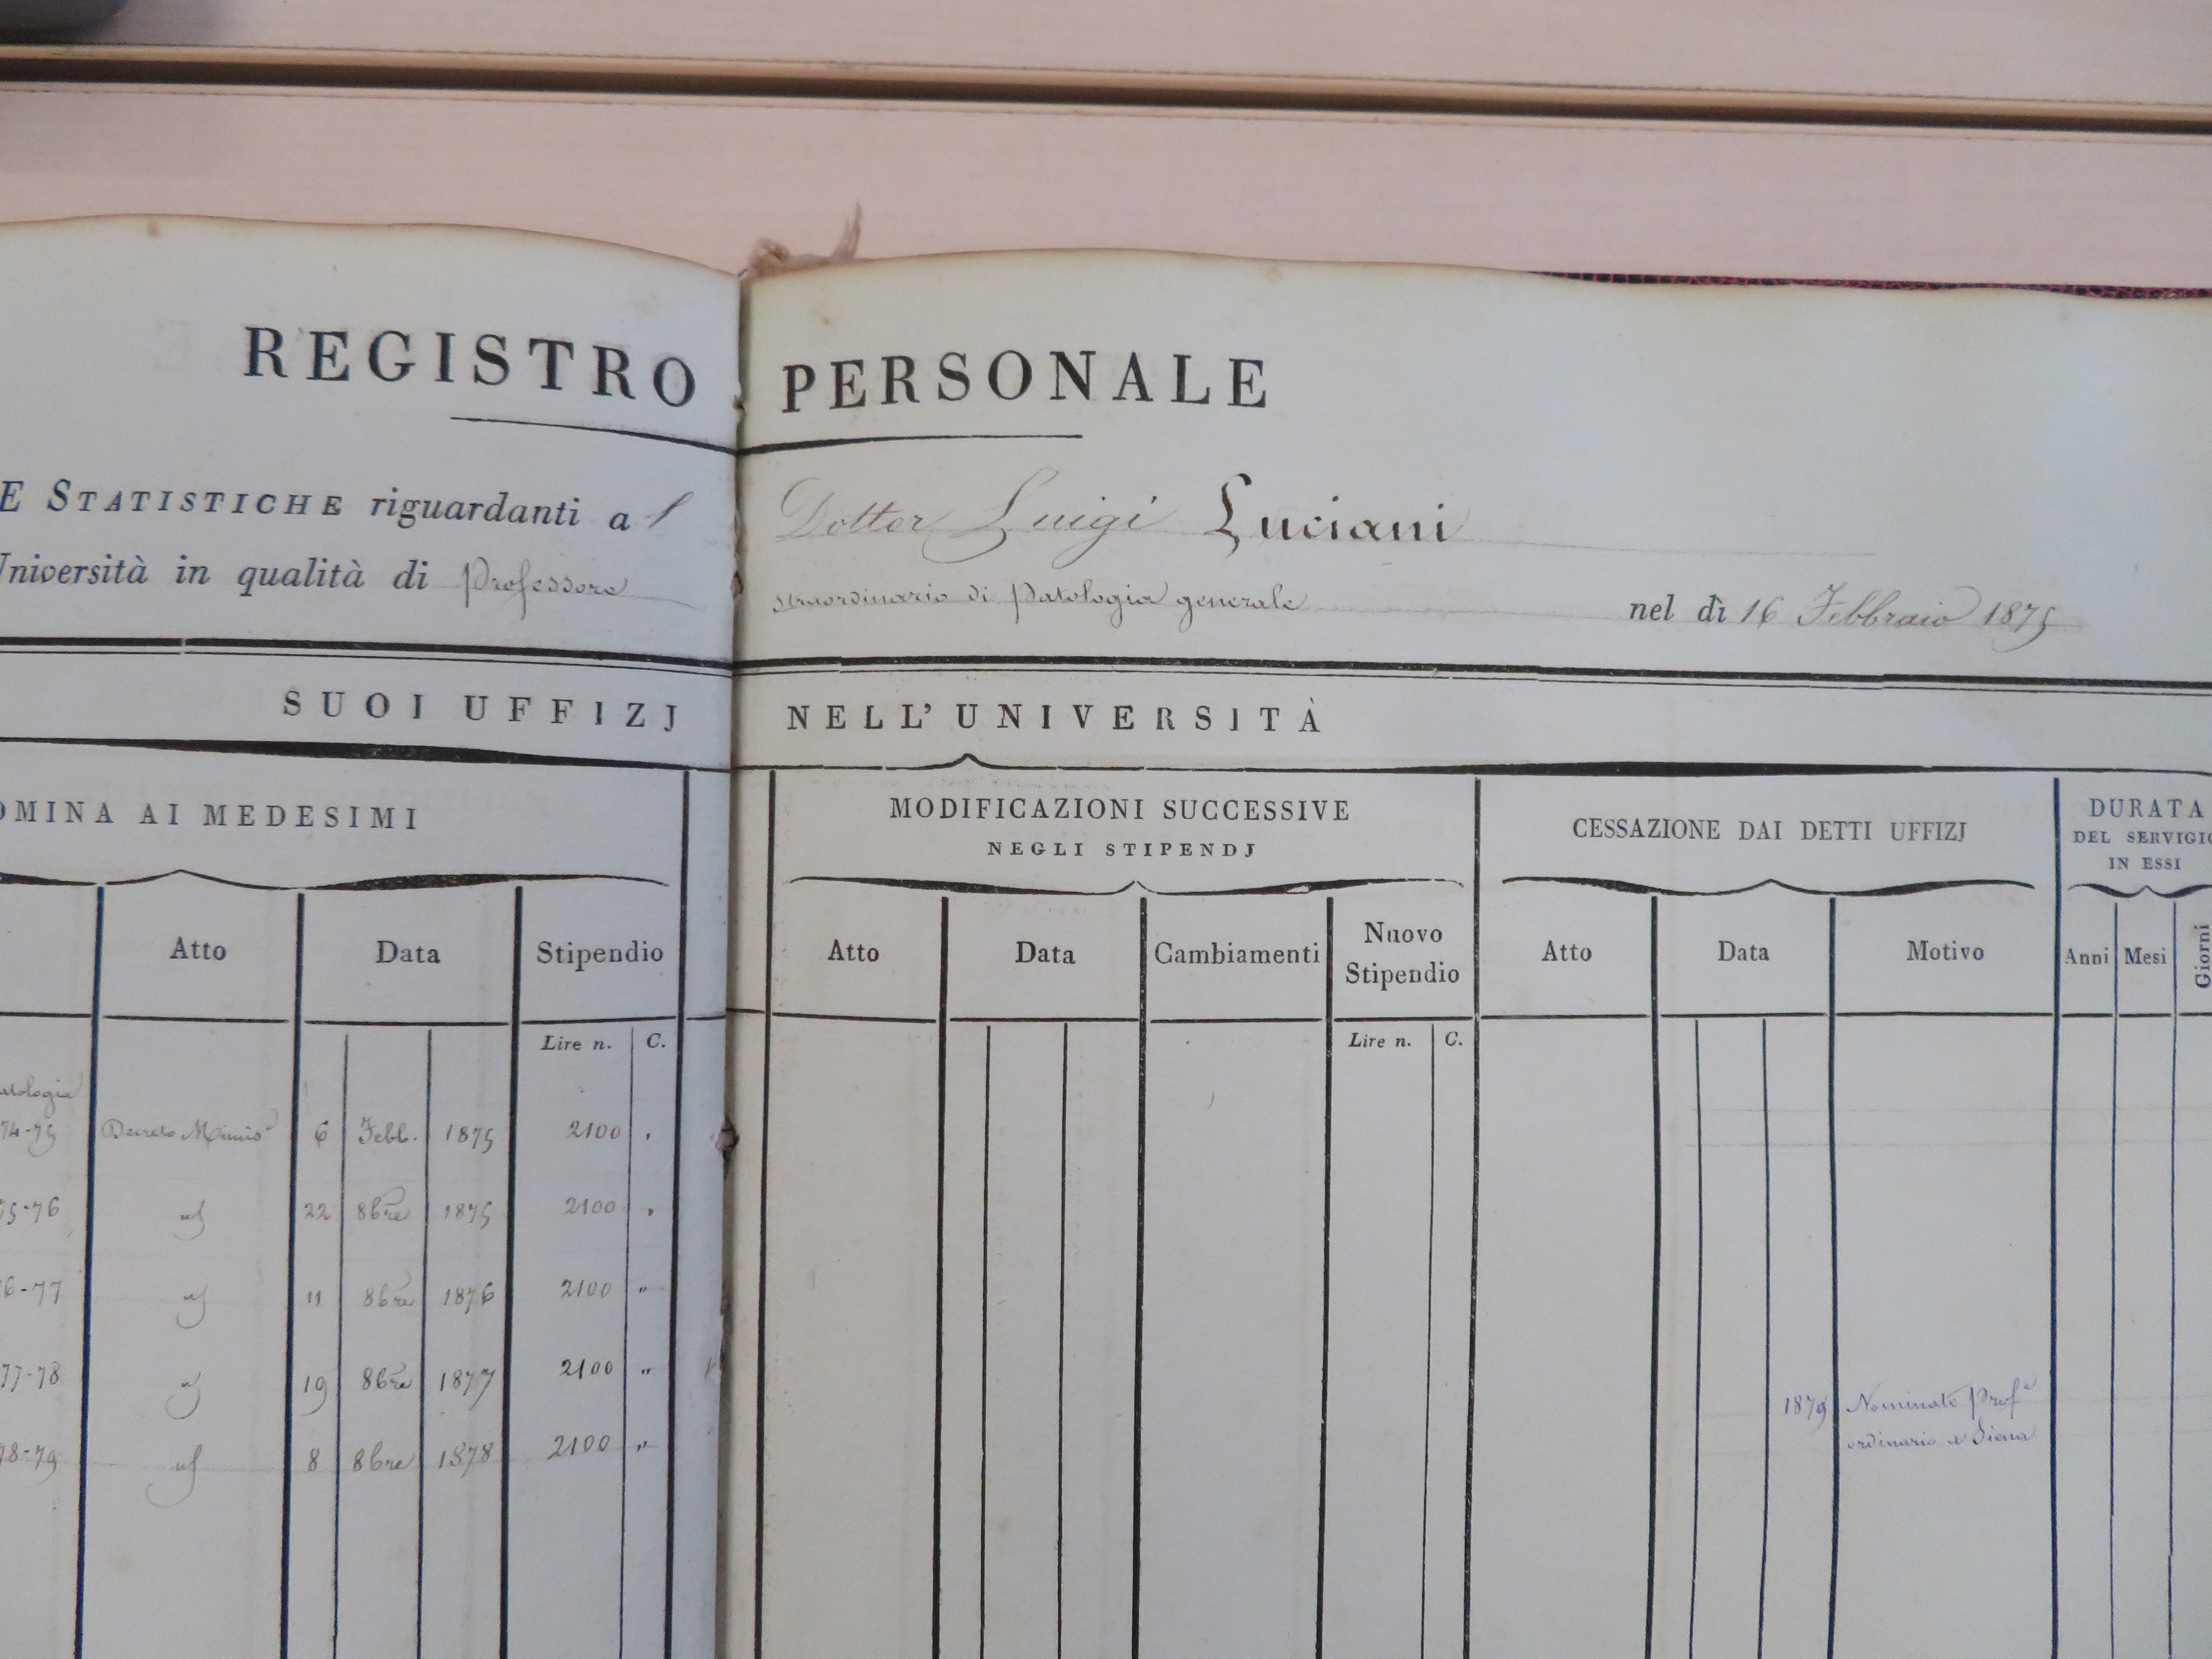 REGISTRO PERSONALE
E STATISTICHE riguardanti al Dottor Luigi Luciani
Università in qualità di Professore straordinario di Patologia generale nel dì 16 Febbraio 1875
SUOI UFFIZJ NELL'UNIVERSITÀ
OMINA AI MEDESIMI
MODIFICAZIONI SUCCESSIVE
NEGLI STIPENDJ
CESSAZIONE DAI DETTI UFFIZJ
DURATA
DEL SERVIGIO
IN ESSI
Atto Data Stipendio Atto Data Cambiamenti Nuovo Stipendio Atto Data Motivo Anni Mesi Giorni
Lire n. C. Lire n. C.
atologia
74-75 Decreto 6 Febb. 1875 2100
75-76 22 8bre 1875 2100 "
6-77 11 8bre 1876 2100 "
77-78 19 8bre 1877 2100 "
1879 Nominato Profe
ordinario a Siena
78-79 8 8bre 1878 2100 "